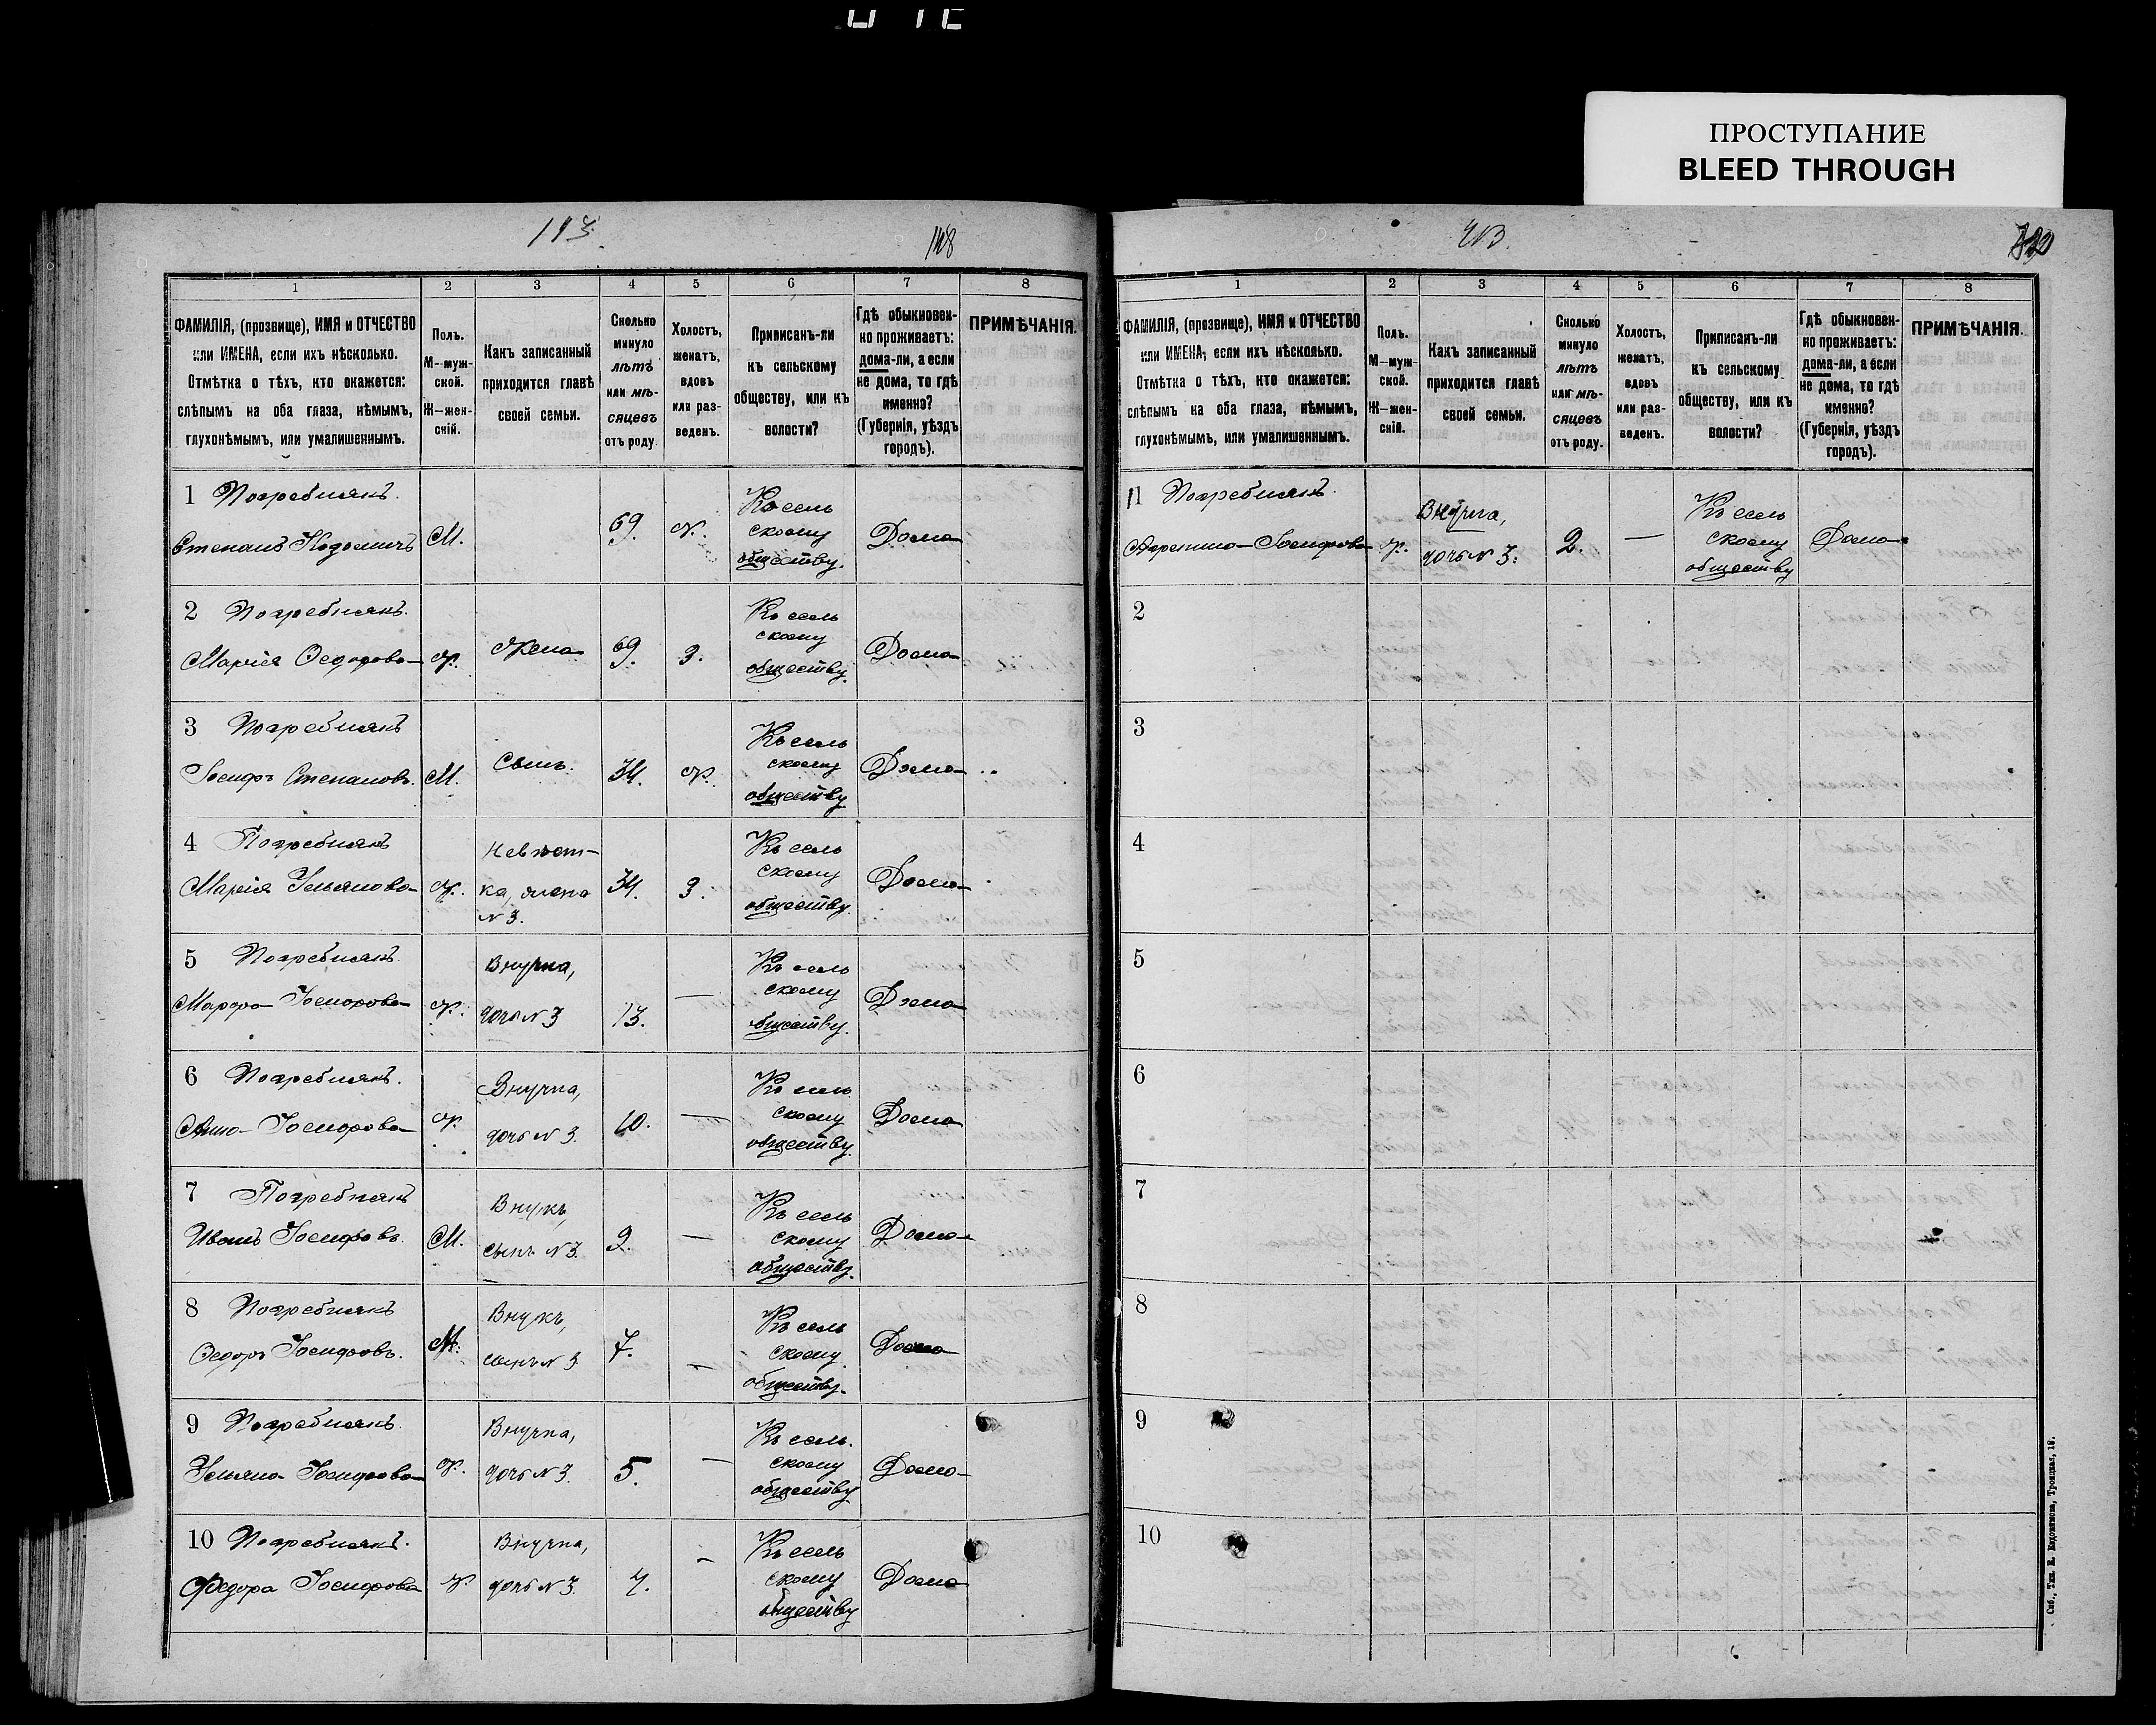 ПРОСТУПАНИЕ
BLEED THROUGH
113.
148
1 2 3 4 5 6 7 8
ФАМИЛІЯ, (прозвище), ИМЯ и ОТЧЕСТВО
или ИМЕНА, если ихъ нѣсколько.
Отмѣтка о тѣхъ, кто окажется:
слѣпымъ на оба глаза, нѣмымъ,
глухонѣмымъ, или умалишеннымъ.
Полъ.
М—муж-
ской.
Ж—жен-
скій.
Какъ записанный
приходится главѣ
своей семьи.
Сколько
минуло
лѣтъ
или мѣ-
сяцевъ
отъ роду.
Холостъ,
женатъ,
вдовъ
или раз-
веденъ.
Приписанъ-ли
къ сельскому
обществу, или къ
волости?
Гдѣ обыкновен-
но проживаетъ:
дома-ли, а если
не дома, то гдѣ
именно?
(Губернія, уѣздъ
городъ).
ПРИМѢЧАНІЯ.
1 Погребнякъ.
Степанъ М. 69. Ж. Къ сель
скому
обществу. Дома
2 Погребнякъ.
Марія Ѳедорова Ж. Жена 69. З. Къ сель
скому
обществу. Дома
3 Погребнякъ
Іосифъ Степановъ. М. Сынъ. 34. Ж. Къ сель
скому
обществу Дома
4 Погребнякъ
Марія Ульянова Ж. Невѣст-
ка, жена
№ 3. 34. З. Къ сель
скому
обществу. Дома
5 Погребнякъ.
Марфа Іосифова Ж. Внучка,
дочь № 3 13. — Къ сель
скому
обществу. Дома
6 Погребнякъ.
Анна Іосифова Ж. Внучка,
дочь № 3. 10. — Къ сель
скому
обществу. Дома
7 Погребнякъ
Иванъ Іосифовъ. М. Внукъ,
сынъ № 3. 9. — Къ сель
скому
обществу. Дома
8 Погребнякъ
Ѳедоръ Іосифовъ. М. Внукъ,
сынъ № 3 7. — Къ сель
скому
обществу. Дома
9 Погребнякъ.
Ульяна Іосифова Ж. Внучка,
дочь № 3. 5. — Къ сель.
скому
обществу Дома
10 Погребнякъ.
Федора Іосифова Ж. Внучка,
дочь № 3. 4. — Къ сель
скому
обществу Дома
1 2 3 4 5 6 7 8
ФАМИЛІЯ, (прозвище), ИМЯ и ОТЧЕСТВО
или ИМЕНА, если ихъ нѣсколько.
Отмѣтка о тѣхъ, кто окажется:
слѣпымъ на оба глаза, нѣмымъ,
глухонѣмымъ, или умалишеннымъ.
Полъ.
М—муж-
ской.
Ж—жен-
скій.
Какъ записанный
приходится главѣ
своей семьи.
Сколько
минуло
лѣтъ
или мѣ-
сяцевъ
отъ роду.
Холостъ,
женатъ,
вдовъ
или раз-
веденъ.
Приписанъ-ли
къ сельскому
обществу, или къ
волости?
Гдѣ обыкновен-
но проживаетъ:
дома-ли, а если
не дома, то гдѣ
именно?
(Губернія, уѣздъ
городъ).
ПРИМѢЧАНІЯ.
11 Погребнякъ.
Іосифова Ж. Внучка,
дочь № 3. 2. — Къ сель
скому
обществу Дома
2
3
4
5
6
7
8
9
10